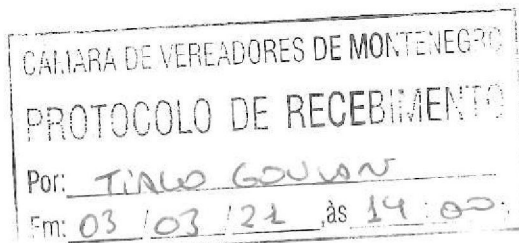 CÂMARA DE VEREADORES DE MONTENEGRO
PROTOCOLO DE RECEBIMENTO
Por:
Em: 03 / 03 / 21 ,às 14 : 00